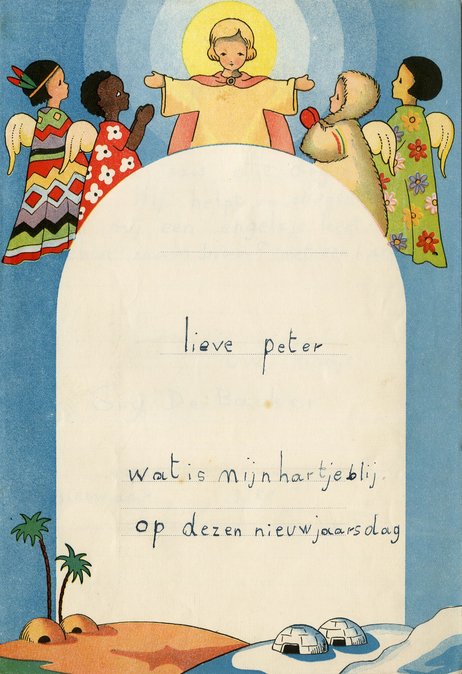 lieve peter
wat is mijn hartje blij.
op dezen nieuwjaarsdag